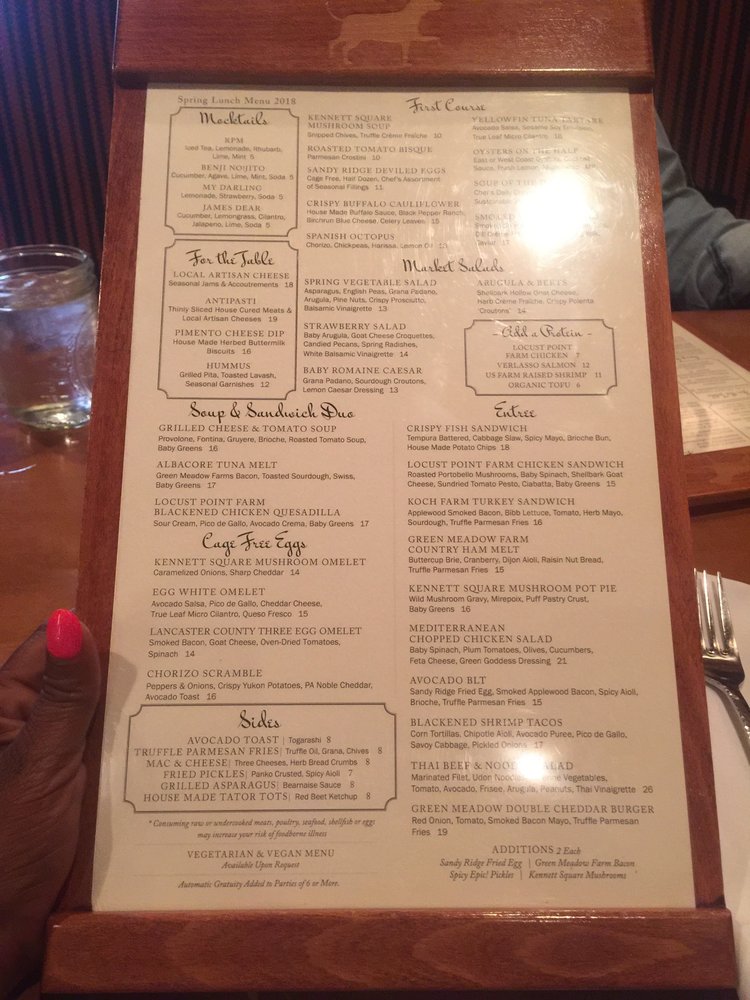 Spring Lunch Menu 2018
Mocktails
RPM
Iced Tea, Lemonade, Rhubarb,
Lime, Mint 5
BENJI NOJITO
Cucumber, Agave, Lime, Mint, Soda 5
MY DARLING
Lemonade, Strawberry, Soda 5
JAMES DEAR
Cucumber, Lemongrass, Cilantro,
Jalapeno, Lime, Soda 5
For the Table
LOCAL ARTISAN CHEESE
Seasonal Jams & Accoutrements 18
ANTIPASTI
Thinly Sliced House Cured Meats &
Local Artisan Cheeses 19
PIMENTO CHEESE DIP
House Made Herbed Buttermilk
Biscuits 16
HUMMUS
Grilled Pita, Toasted Lavash,
Seasonal Garnishes 12
First Course
KENNETT SQUARE
MUSHROOM SOUP
Snipped Chives, Truffle Crème Fraîche 10
ROASTED TOMATO BISQUE
Parmesan Crostini 10
SANDY RIDGE DEVILED EGGS
Cage Free, Half Dozen, Chef's Assortment
of Seasonal Fillings 11
CRISPY BUFFALO CAULIFLOWER
House Made Buffalo Sauce, Black Pepper Ranch,
Birchrun Blue Cheese, Celery Leaves 15
SPANISH OCTOPUS
Chorizo, Chickpeas, Harissa, Lemon Oil 18
YELLOWFIN TUNA TARTARE
Avocado Salsa, Sesame Soy Emulsion,
True Leaf Micro Cilantro 16
OYSTERS ON THE HALF
East or West Coast
Sauce, Fresh Lemon,
SOUP OF THE
Chef's
Sustainable
SMOKED
Smoked
Dill Crème
17
Market Salads
SPRING VEGETABLE SALAD
Asparagus, English Peas, Grana Padano,
Arugula, Pine Nuts, Crispy Prosciutto,
Balsamic Vinaigrette 13
STRAWBERRY SALAD
Baby Arugula, Goat Cheese Croquettes,
Candied Pecans, Spring Radishes,
White Balsamic Vinaigrette 14
BABY ROMAINE CAESAR
Grana Padano, Sourdough Croutons,
Lemon Caesar Dressing 13
ARUGULA & BEETS
Shellbark Hollow Goat Cheese,
Herb Crème Fraîche, Crispy Polenta
'Croutons' 14
- Add a Protein -
LOCUST POINT
FARM CHICKEN 7
VERLASSO SALMON 12
US FARM RAISED SHRIMP 11
ORGANIC TOFU 6
Soup & Sandwich Duo
GRILLED CHEESE & TOMATO SOUP
Provolone, Fontina, Gruyere, Brioche, Roasted Tomato Soup,
Baby Greens 16
ALBACORE TUNA MELT
Green Meadow Farms Bacon, Toasted Sourdough, Swiss,
Baby Greens 17
LOCUST POINT FARM
BLACKENED CHICKEN QUESADILLA
Sour Cream, Pico de Gallo, Avocado Crema, Baby Greens 17
Cage Free Eggs
KENNETT SQUARE MUSHROOM OMELET
Caramelized Onions, Sharp Cheddar 14
EGG WHITE OMELET
Avocado Salsa, Pico de Gallo, Cheddar Cheese,
True Leaf Micro Cilantro, Queso Fresco 15
LANCASTER COUNTY THREE EGG OMELET
Smoked Bacon, Goat Cheese, Oven-Dried Tomatoes,
Spinach 14
CHORIZO SCRAMBLE
Peppers & Onions, Crispy Yukon Potatoes, PA Noble Cheddar,
Avocado Toast 16
Sides
AVOCADO TOAST | Togarashi 8
TRUFFLE PARMESAN FRIES| Truffle Oil, Grana, Chives 8
MAC & CHEESE| Three Cheeses, Herb Bread Crumbs 8
FRIED PICKLES| Panko Crusted, Spicy Aioli 7
GRILLED ASPARAGUS| Bearnaise Sauce 8
HOUSE MADE TATOR TOTS| Red Beet Ketchup 8
* Consuming raw or undercooked meats, poultry, seafood, shellfish or eggs
may increase your risk of foodborne illness
VEGETARIAN & VEGAN MENU
Available Upon Request
Automatic Gratuity Added to Parties of 6 or More.
Entrée
CRISPY FISH SANDWICH
Tempura Battered, Cabbage Slaw, Spicy Mayo, Brioche Bun,
House Made Potato Chips 18
LOCUST POINT FARM CHICKEN SANDWICH
Roasted Portobello Mushrooms, Baby Spinach, Shellbark Goat
Cheese, Sundried Tomato Pesto, Ciabatta, Baby Greens 15
KOCH FARM TURKEY SANDWICH
Applewood Smoked Bacon, Bibb Lettuce, Tomato, Herb Mayo,
Sourdough, Truffle Parmesan Fries 16
GREEN MEADOW FARM
COUNTRY HAM MELT
Buttercup Brie, Cranberry, Dijon Aioli, Raisin Nut Bread,
Truffle Parmesan Fries 15
KENNETT SQUARE MUSHROOM POT PIE
Wild Mushroom Gravy, Mirepoix, Puff Pastry Crust,
Baby Greens 16
MEDITERRANEAN
CHOPPED CHICKEN SALAD
Baby Spinach, Plum Tomatoes, Olives, Cucumbers,
Feta Cheese, Green Goddess Dressing 21
AVOCADO BLT
Sandy Ridge Fried Egg, Smoked Applewood Bacon, Spicy Aioli,
Brioche, Truffle Parmesan Fries 15
BLACKENED SHRIMP TACOS
Corn Tortillas, Chipotle Aioli, Avocado Puree, Pico de Gallo,
Savoy Cabbage, Pickled Onions 17
THAI BEEF & NOODLE SALAD
Marinated Filet, Udon Noodles, Vegetables,
Tomato, Avocado, Frisee, Arugula, Peanuts, Thai Vinaigrette 26
GREEN MEADOW DOUBLE CHEDDAR BURGER
Red Onion, Tomato, Smoked Bacon Mayo, Truffle Parmesan
Fries 19
ADDITIONS 2 Each
Sandy Ridge Fried Egg | Green Meadow Farm Bacon
Spicy Epic! Pickles | Kennett Square Mushrooms